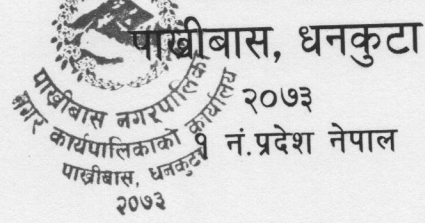 पाख्रीबास, धनकुटा
२०७३
१ नं.प्रदेश नेपाल
पाख्रीबास नगरपालिका
नगर कार्यपालिकाको कार्यालय
पाख्रीबास, धनकुटा
२०७३